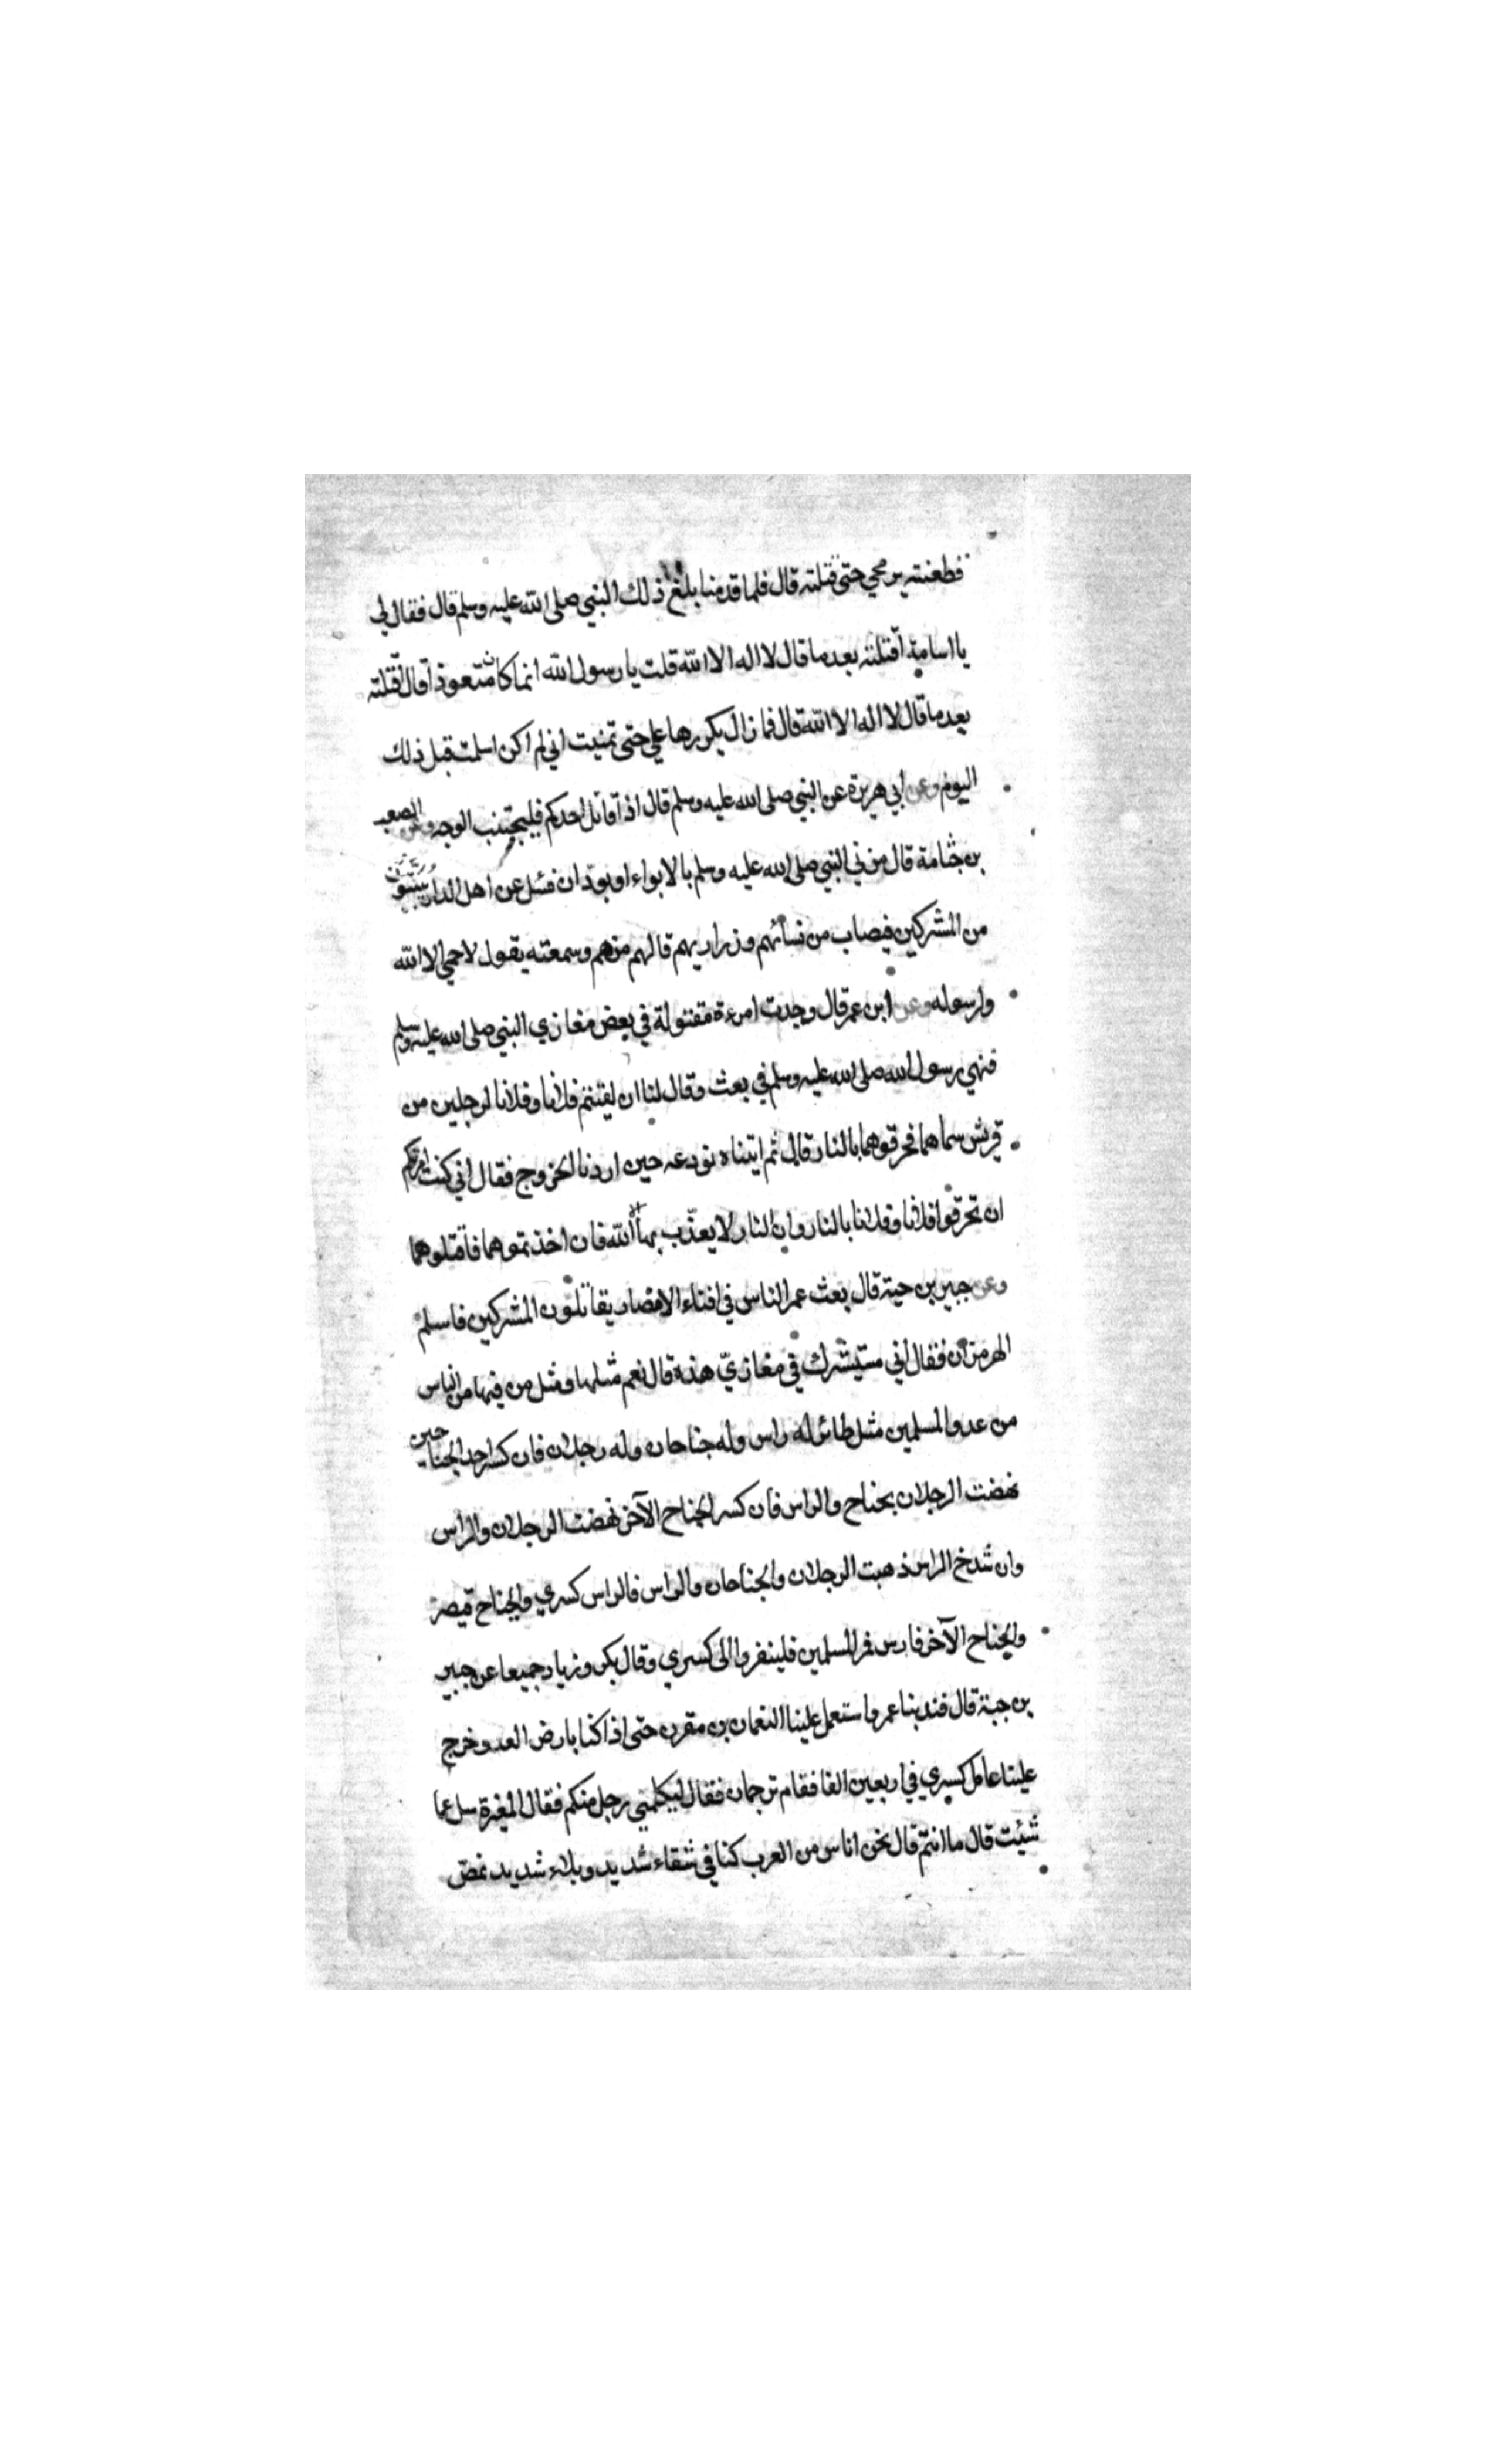 فطعنته برمحي حتى قتلته قال فلما قدمنا بلغ ذلك النبي صلى الله عليه وسلم قال فقال لي
يا اسامة أقتلته بعد ما قال لا اله الا الله قلت يا رسول الله انما كان متعوذا قال أقتلته
بعد ما قال لا اله الا الله قال فما زال يكررها علي حتى تمنيت اني لم اكن اسلمت قبل ذلك
اليوم وعن ابي هريرة عن النبي صلى الله عليه وسلم قال اذا قاتل احدكم فليجتنب الوجه وعن الصعب
بن جثامة قال مر بي النبي صلى الله عليه وسلم بالابواء او بودّان فسئل عن اهل الدار يبيتون
من المشركين فيصاب من نسائهم وذراريهم قال هم منهم وسمعته يقول لا حمي الا لله
ولرسوله وعن ابن عمر قال وجدت امرءة مقتولة في بعض مغازي النبي صلى الله عليه وسلم
فنهي رسول الله صلى الله عليه وسلم في بعث وقال لنا ان لقيتم فلانا وفلانا لرجلين من
قريش سماهما فحرقوهما بالنار قال ثم اتيناه نودعه حين اردنا الخروج فقال اني كنت امرتكم
ان تحرقوا فلانا وفلانا بالنار وان النار لا يعذّب بها الا الله فان اخذتموهما فاقتلوهما
وعن جبير بن حية قال بعث عمر الناس في افناء الامصار يقاتلون المشركين فاسلم
الهرمزان فقال اني مستيشرك في مغازيّ هذه قال نعم مثلها ومثل من فيها من الناس
من عدو المسلمين مثل طائر له راس وله جناحان وله رجلان فان كسر احد الجناحين
نهضت الرجلان بجناح والراس فان كسر الجناح الآخر نهضت الرجلان والراس
وان شدخ الراس ذهبت الرجلان والجناحان والراس فالراس كسري والجناح قيصر
والجناح الآخر فارس فمر المسلمين فلينفروا الى كسري وقال بكر وزياد جميعا عن جبير
بن حية قال فندبنا عمر واستعمل علينا النعمان بن مقرن حتى اذا كنا بارض العدو خرج
علينا عامل كسري في اربعين الفا فقام ترجمان فقال ليكلمني رجل منكم فقال المغيرة سل عما
شئت قال ما انتم قال نحن اناس من العرب كنا في شقاء شديد وبلاء شديد نمصّ